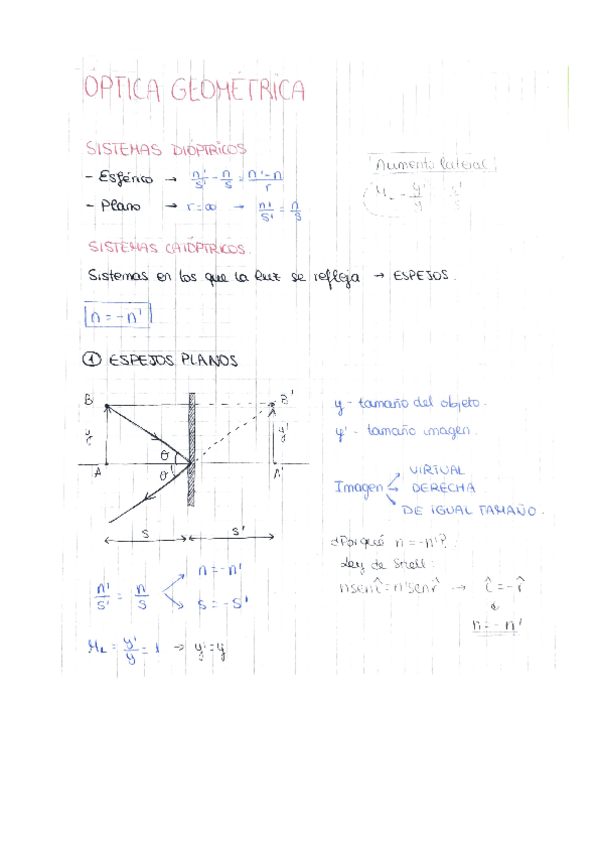 ÓPTICA GEOMÉTRICA
SISTEMAS DIÓPTRICOS
- Esférico → n'/s' - n/s = n'-n/r
- Plano → r=∞ → n'/s' = n/s
Aumento lateral
SISTEMAS CATÓPTRICOS.
Sistemas en los que la luz se refleja → ESPEJOS.
n = -n'
① ESPEJOS PLANOS
B
B'
y
y'
θ
θ'
A
A'
s
s'
y - tamaño del objeto.
y' - tamaño imagen.
Imagen
VIRTUAL
DERECHA
DE IGUAL TAMAÑO.
¿Por qué n = -n'?
Ley de Snell:
n sen î = n' sen r̂ → î = -r̂
n = -n'
n'/s' = n/s
n = -n'
s = -s'
M_L = y'/y = 1 → y' = y